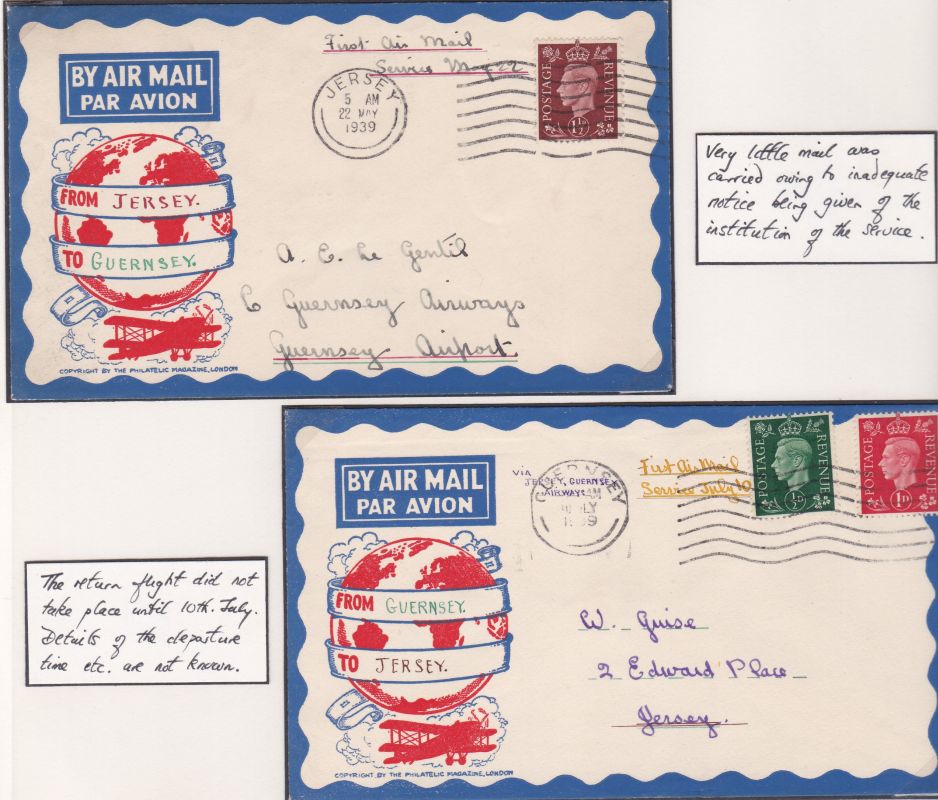 First Air Mail
Service May 22
BY AIR MAIL
PAR AVION
JERSEY
5 AM
22 MAY
1939
POSTAGE
REVENUE
1½D
FROM JERSEY.
TO GUERNSEY.
A. E. Le Gentil
Guernsey Airways
Guernsey Airport.
COPYRIGHT BY THE PHILATELIC MAGAZINE, LONDON
Very little mail was
carried owing to inadequate
notice being given of the
institution of the service.
First Air Mail
Service July 10
BY AIR MAIL
PAR AVION
VIA
JERSEY, GUERNSEY
AIRWAYS
GUERNSEY
AM
1939
POSTAGE
REVENUE
½D
POSTAGE
REVENUE
1D
The return flight did not
take place until 10th. July.
Details of the departure
time etc. are not known.
FROM GUERNSEY.
TO JERSEY.
W. Guise
2 Edward Place
Jersey.
COPYRIGHT BY THE PHILATELIC MAGAZINE, LONDON